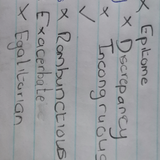 x Epitome
x Discrepancy
x Incongruou
✓
x Rambunctious
Exacerbate
x Egalitarian